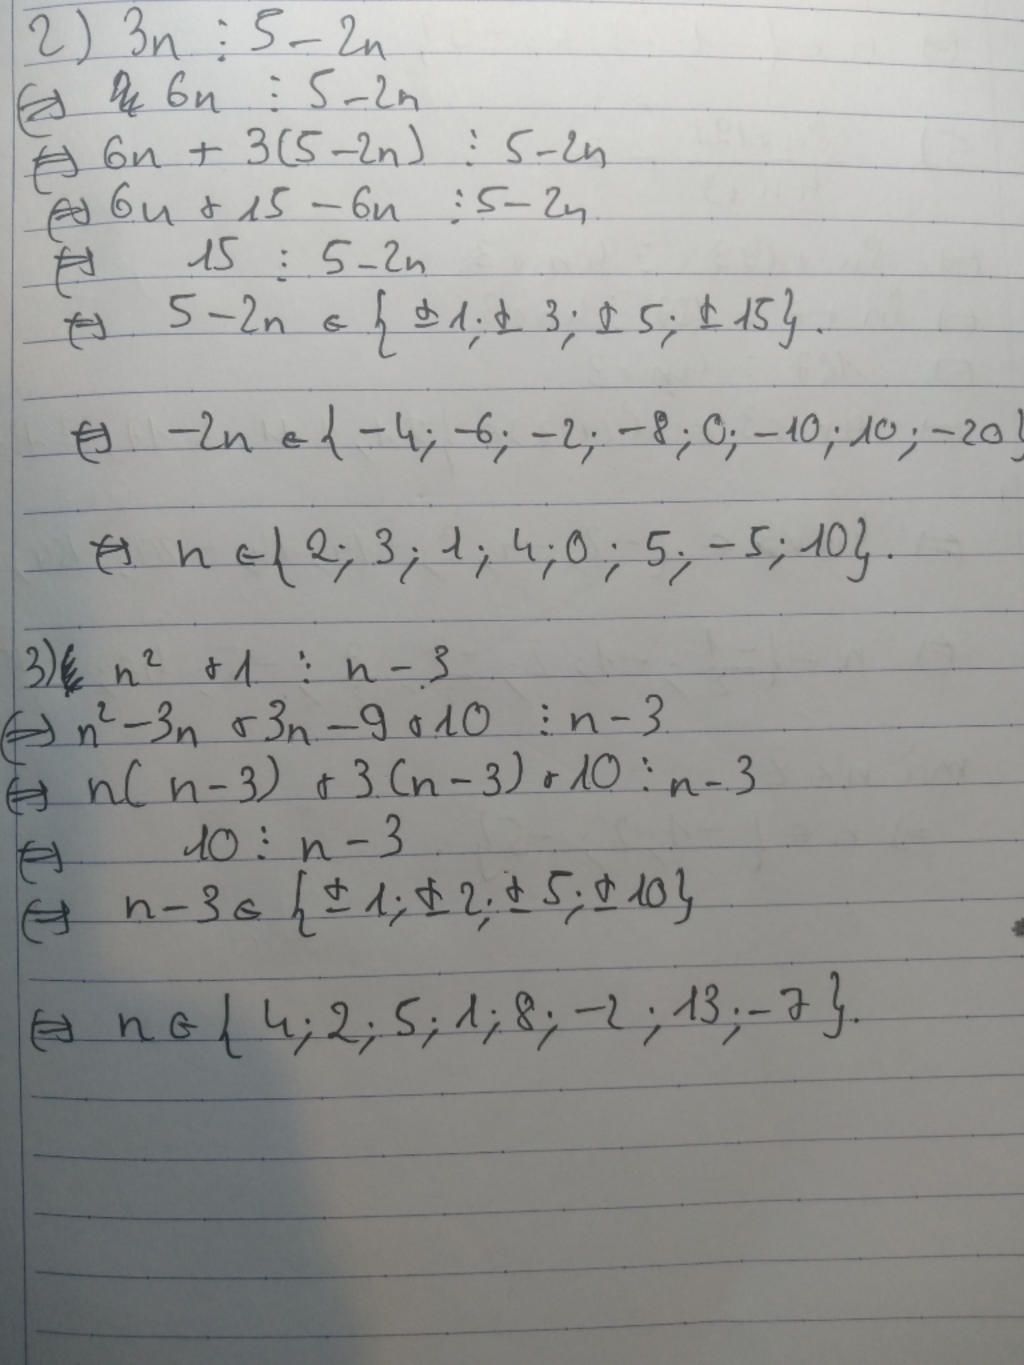 2) 3n ⋮ 5 - 2n
⇔ 6n ⋮ 5 - 2n
⇔ 6n + 3(5 - 2n) ⋮ 5 - 2n
⇔ 6n + 15 - 6n ⋮ 5 - 2n
⇔ 15 ⋮ 5 - 2n
⇔ 5 - 2n ∈ { ±1; ±3; ±5; ±15}.
⇔ -2n ∈ { -4; -6; -2; -8; 0; -10; 10; -20}
⇔ n ∈ { 2; 3; 1; 4; 0; 5; -5; 10}.
3) n² + 1 ⋮ n - 3
⇔ n² - 3n + 3n - 9 + 10 ⋮ n - 3
⇔ n( n - 3) + 3(n - 3) + 10 ⋮ n - 3
⇔ 10 ⋮ n - 3
⇔ n - 3 ∈ { ±1; ±2; ±5; ±10}
⇔ n ∈ { 4; 2; 5; 1; 8; -2; 13; -7}.